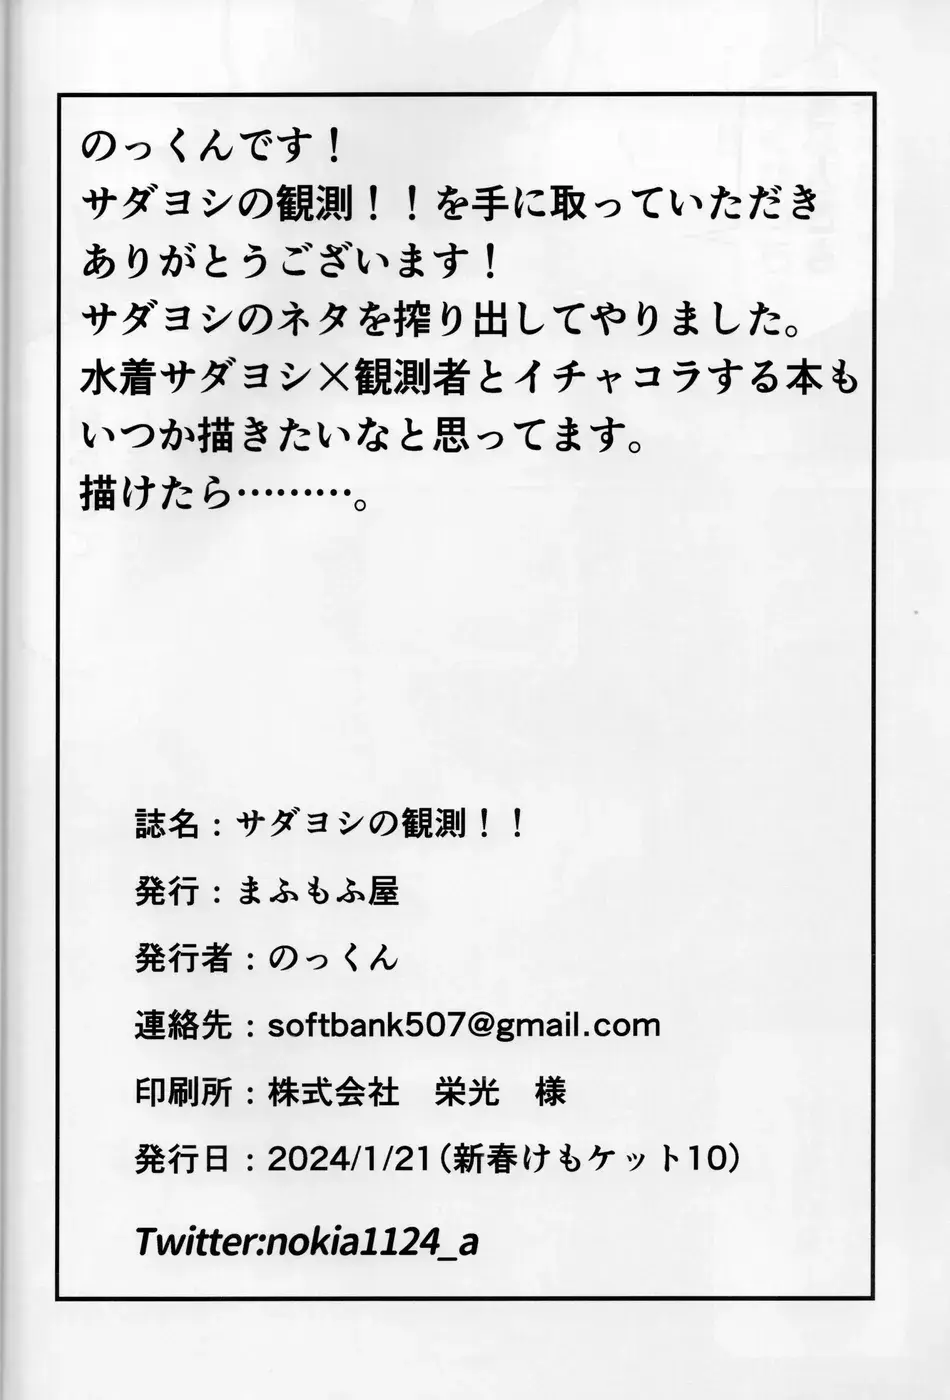 のっくんです！
サダヨシの観測！！を手に取っていただき
ありがとうございます！
サダヨシのネタを搾り出してやりました。
水着サダヨシ×観測者とイチャコラする本も
いつか描きたいなと思ってます。
描けたら………。
誌名：サダヨシの観測！！
発行：まふもふ屋
発行者：のっくん
連絡先：softbank507@gmail.com
印刷所：株式会社　栄光　様
発行日：2024/1/21（新春けもケット10）
Twitter:nokia1124_a